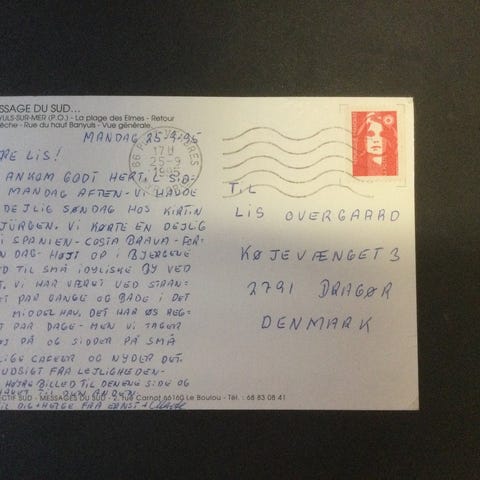 ESSAGE DU SUD...
YULS-SUR-MER (P.O.) - La plage des Elmes - Retour
êche - Rue du haut Banyuls - Vue générale.
MANDAG 25-9-95
RE LIS!
ANKOM GODT HERTIL SID-
MANDAG AFTEN - VI HAVDE
DEJLIG SØNDAG HOS KIRTIN
JÜRGEN. VI KØRTE EN DEJLIG
I SPANIEN - COSTA BRAVA - FOR-
N DAG - HØJT OP I BJERGENE
D TIL SMÅ IDYLISKE BY VED
T. VI HAR VÆRET VED STRAN-
T PAR GANGE OG BADE I DET
MIDDELHAV. DET HAR ØS REG-
T PAR DAGE - MEN VI TAGER
PÅ OG SIDDER PÅ SMÅ
LIGE CAFEER OG NYDER DET.
UDSIGT FRA LEJLIGHEDEN -
HØJRE BILLED TIL DENENE SIDE OG
HAVET TIL DEN ANDEN
TIL DIG + HELGE FRA ERNST +
17H
25-9
1995
66
TIL
LIS OVERGAARD
KØJEVÆNGET 3
2791 DRAGØR
DENMARK
ECTIF SUD - MESSAGES DU SUD - 2, rue Carnot 66160 Le Boulou - Tél. : 68 83 08 41